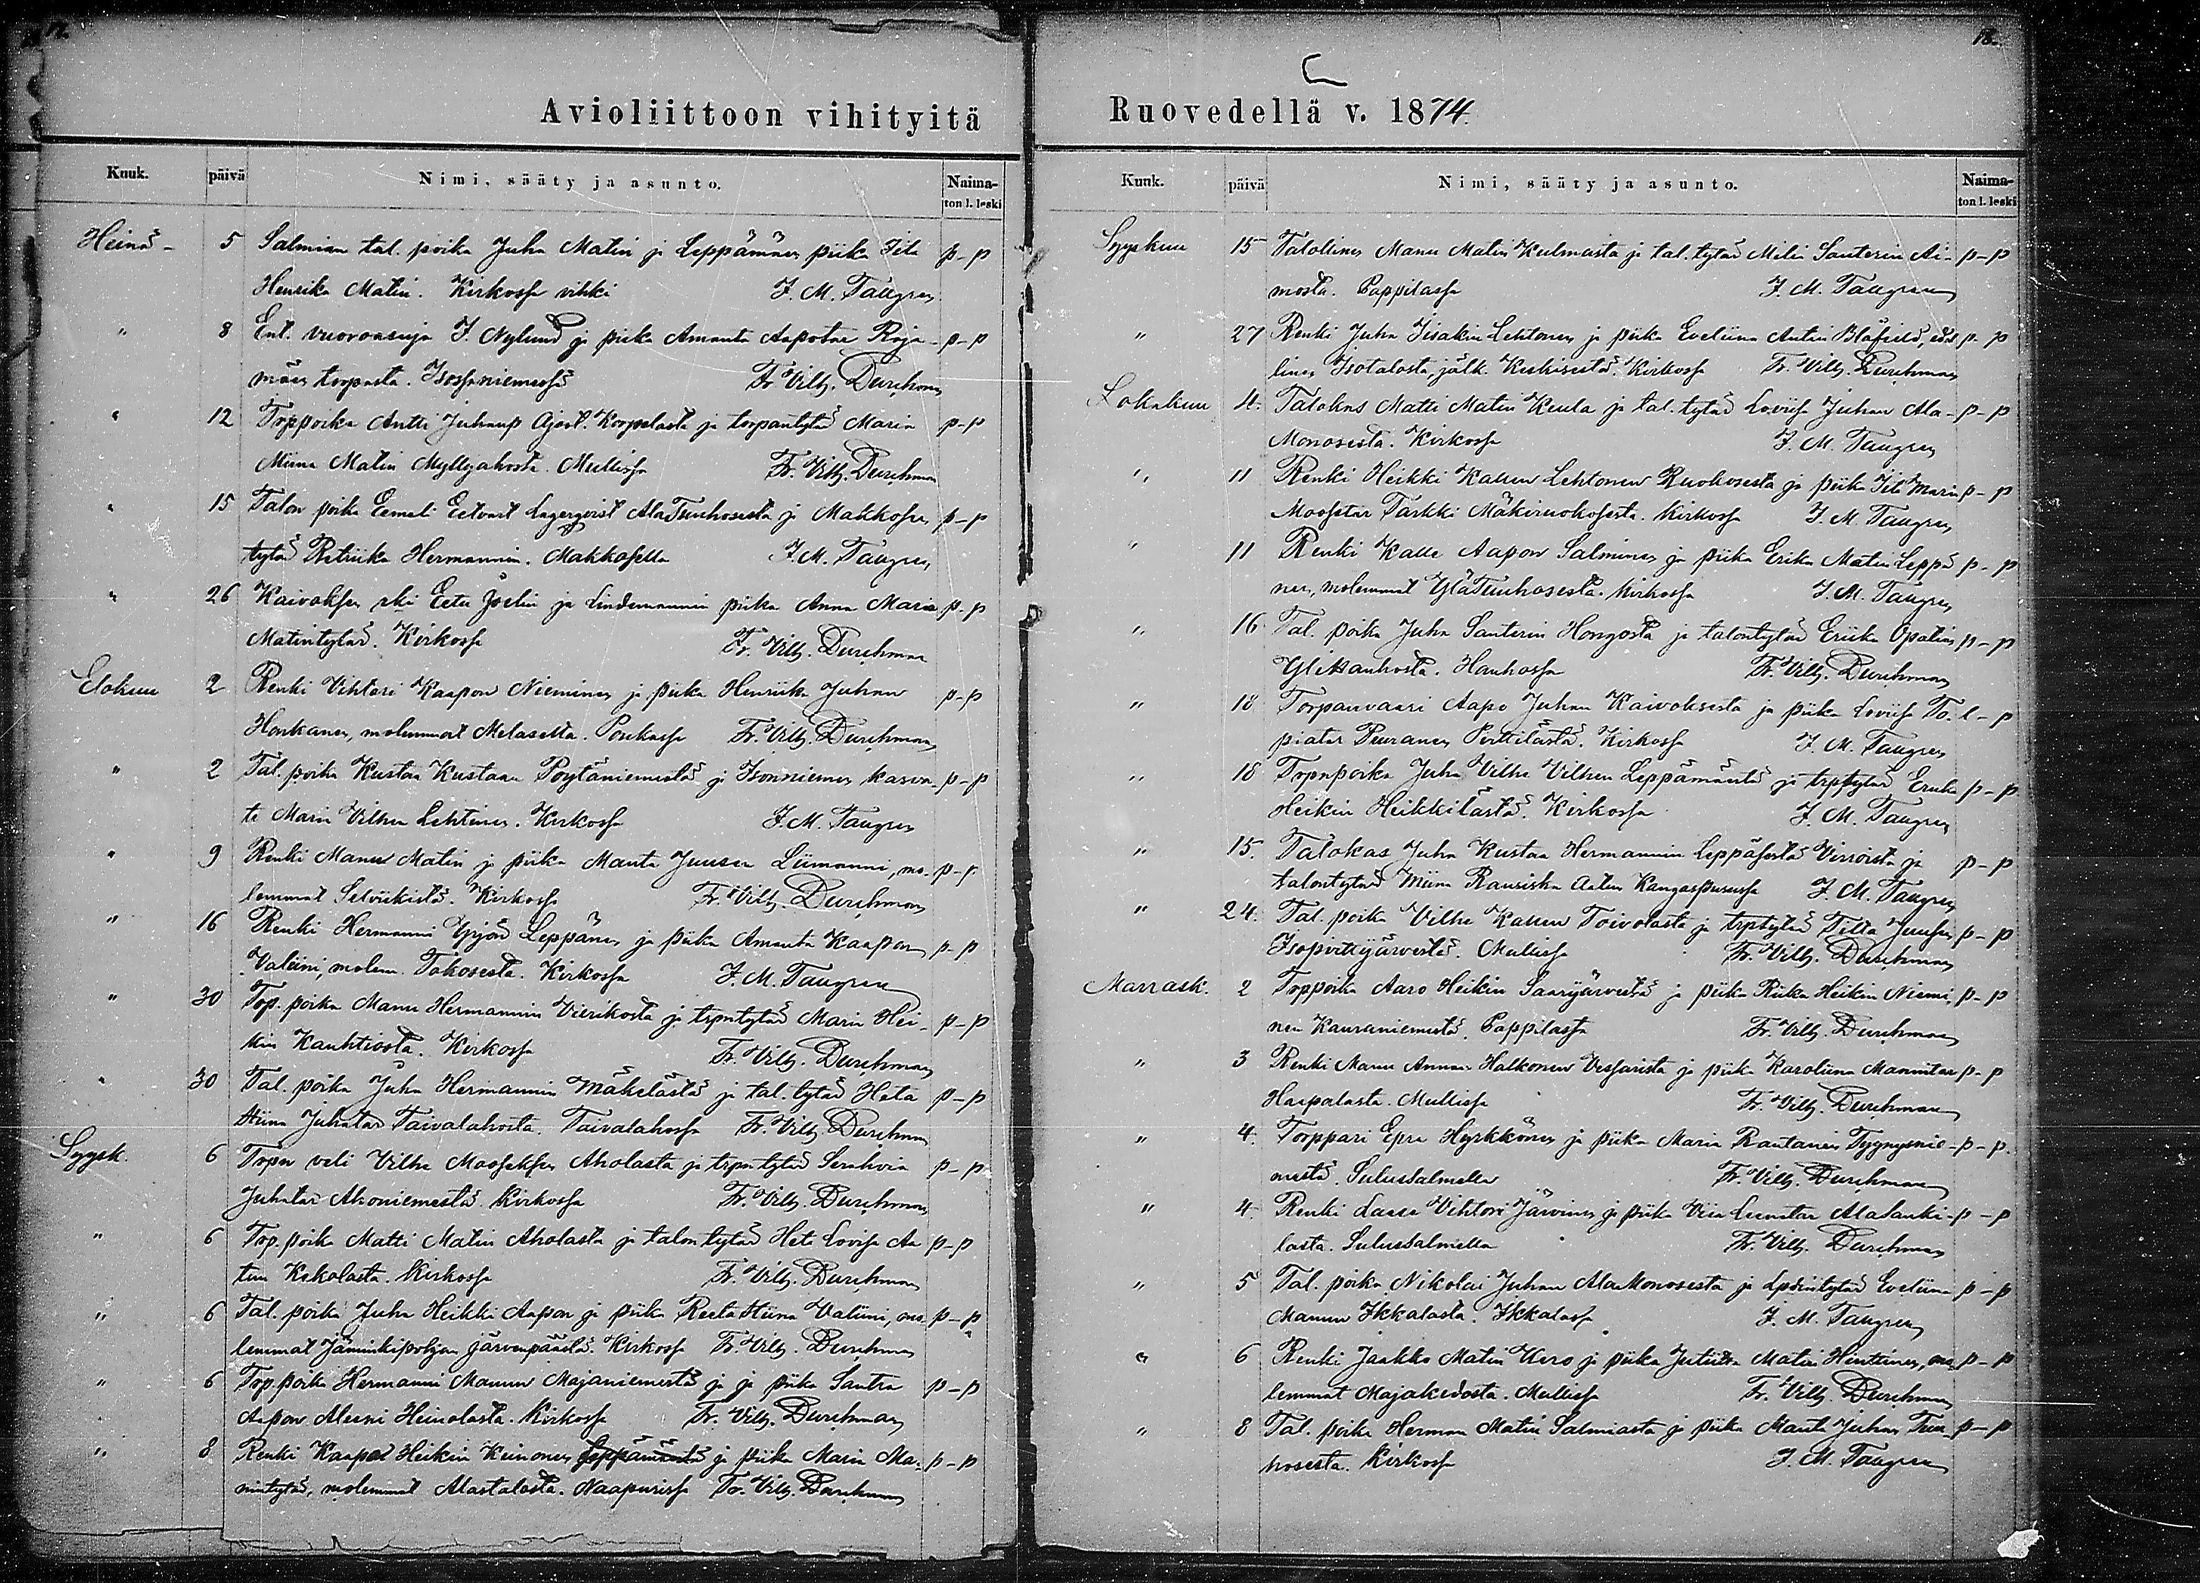 12.
Avioliittoon vihityitä
Kuuk. päivä Nimi, sääty ja asunto. Naimaton l. leski
Heinä- 5 Salmian tal. poika Juha Matin ja Leppämäen piika Iita p-p
Henrika Matin. Kirkossa vihki J. M. Taugren
" 8 Ent. vuoroasuja J. Nylund ja piika Amanta Aapotar Raja- p-p
mäen torpasta. Fr. Vilh. Durchman
" 12 Torppoika Antti Juhanp Korpelasta ja torpantytär Maria p-p
Miina Matin Myllyahosta. Mullissa Fr. Vilh. Durchman
" 15 Talon poika Eemeli Eetvart Lagerqvist AlaTuuhosesta ja Makkosen p-p
tytär Hermannin. Makkosella J. M. Taugren
" 26 Eetu ja Lindemannin piika Anna Maria p-p
Matintytär. Kirkossa Fr. Vilh. Durchman
Elokuu 2 Renki Vihtori Kaapon Nieminen ja piika Henriika Juhan p-p
Honkanen, molemmat Melasella. Fr. Vilh. Durchman
" 2 Tal. poika Kustaa Kustaan Pöytäniemestä ja Isonniemen kasva- p-p
ti Maria Vilhen Lehtinen. Kirkossa J. M. Taugren
" 9 Renki Manu Matin ja piika Manta Juusen Liimanni, mo- p-p
lemmat Kirkossa Fr. Vilh. Durchman
" 16 Renki Hermanni Yrjön Leppänen ja piika Amanta Kaapon p-p
Valiini, molem. Kirkossa J. M. Taugren
" 30 Top. poika Manu Hermannin Vierikosta ja trpntytär Maria Hei- p-p
kin Kauhtiosta. Kirkossa Fr. Vilh. Durchman
" 30 Tal. poika Juha Hermannin Mäkelästä ja tal. tytär Heta p-p
Stiina Juhatar Taivalahosta. Taivalahossa Fr. Vilh. Durchman
Syysk. 6 Trpn veli Vilhe Mooseksen Aholasta ja trpntytär Serahvia p-p
Juhatar Ahoniemestä. Kirkossa Fr. Vilh. Durchman
" 6 Top. poika Matti Matin Aholasta ja talon tytär Heta Loviisa Aa p-p
tun Kekolasta. Kirkossa Fr. Vilh. Durchman
" 6 Tal. poika Juha Heikki Aapon ja piika Reeta Stiina Valiini, mo- p-p
lemmat Jäminkipohjan järvenpäästä. Kirkossa Fr. Vilh. Durchman
" 6 Top. poika Hermanni Manun Majaniemestä ja ja piika Santra p-p
Aapon Aleeni Heinolasta. Kirkossa Fr. Vilh. Durchman
" 8 Renki Kaapo Heikin Keinonen ja piika Maria Ma- p-p
tintytär, molemmat Alastalosta. Naapurissa Fr. Vilh. Durchman
18.
Ruovedellä v. 1874.
Kuuk. päivä Nimi, sääty ja asunto. Naimaton l. leski
Syyskuu 15 Talollinen Manu Matin Kulmasta ja tal. tytär Milia Santerin Ai- p-p
mosta. Pappilassa J. M. Taugren
" 27 Renki Juha Iisakin Lehtonen ja piika Eveliina Antin Blåfield, edel p-p
linen Isotalosta, jälk. Keskisestä. Kirkossa Fr. Vilh. Durchman
Lokakuu 4. Talokas Matti Matin Keula ja tal. tytär Loviisa Juhan Ala- p-p
Monosesta. Kirkossa J. M. Taugren
" 11 Renki Heikki Kallen Lehtonen Ruokosesta ja piika Iita Maria p-p
Moosetar Tarkki Mäkiruokosesta. Kirkossa J. M. Taugren
" 11 Renki Kalle Aapon Salminen ja piika Erika Matin Leppä p-p
nen, molemmat YläTuuhosesta. Kirkossa J. M. Taugren
" 16 Tal. poika Juha Santerin Hongosta ja talontytär Eriika p-p
YliHauhosta. Hauhossa Fr. Vilh. Durchman
" 18 Torpanvaari Aapo Juhan Kaivoksesta ja piika Loviisa To- l-p
piatar Peuranen Perttilästä. Kirkossa J. M. Taugren
" 18 Trpnpoika Juha Vilhe Vilhen Leppämäestä ja trptytär Erika p-p
Heikin Heikkilästä. Kirkossa J. M. Taugren
" 15. Talokas Juha Kustaa Hermannin Virroista ja p-p
talontytär Miina Aatun J. M. Taugren
" 24. Tal. poika Vilhe Kallen Toivolasta ja trptytär Tilta Juusen p-p
Mullissa Fr. Vilh. Durchman
Marrask. 2 Toppoika Aaro Heikin Saarijärvestä ja piika Riika Heikin Niemi- p-p
nen Kauraniemestä. Pappilassa Fr. Vilh. Durchman
" 3 Renki Manu Annan Halkonen Vessarista ja piika Karoliina Mannitar p-p
Haapalasta. Mullissa Fr. Vilh. Durchman
" 4. Torppari Epra Hyrkkönen ja piika Maria Rautanen p-p.
mestä. Sulussalmella Fr. Vilh. Durchman
" 4. Renki Lassa Vihtori Järvinen ja piika p-p
lasta. Sulussalmella Fr. Vilh. Durchman
" 5 Tal. poika Nikolai Juhan AlaMonosesta ja Eveliina p-p
Manun Ikkalasta. Ikkalassa J. M. Taugren
" 6 Renki Jaakko Matin Kero ja piika Matin mo p-p
lemmat Majakedosta. Mullissa Fr. Vilh. Durchman
" 8 Tal. poika Herman Matin Salmiasta ja piika Manta Juhan Tuu- p-p
hosesta. Kirkossa J. M. Taugren